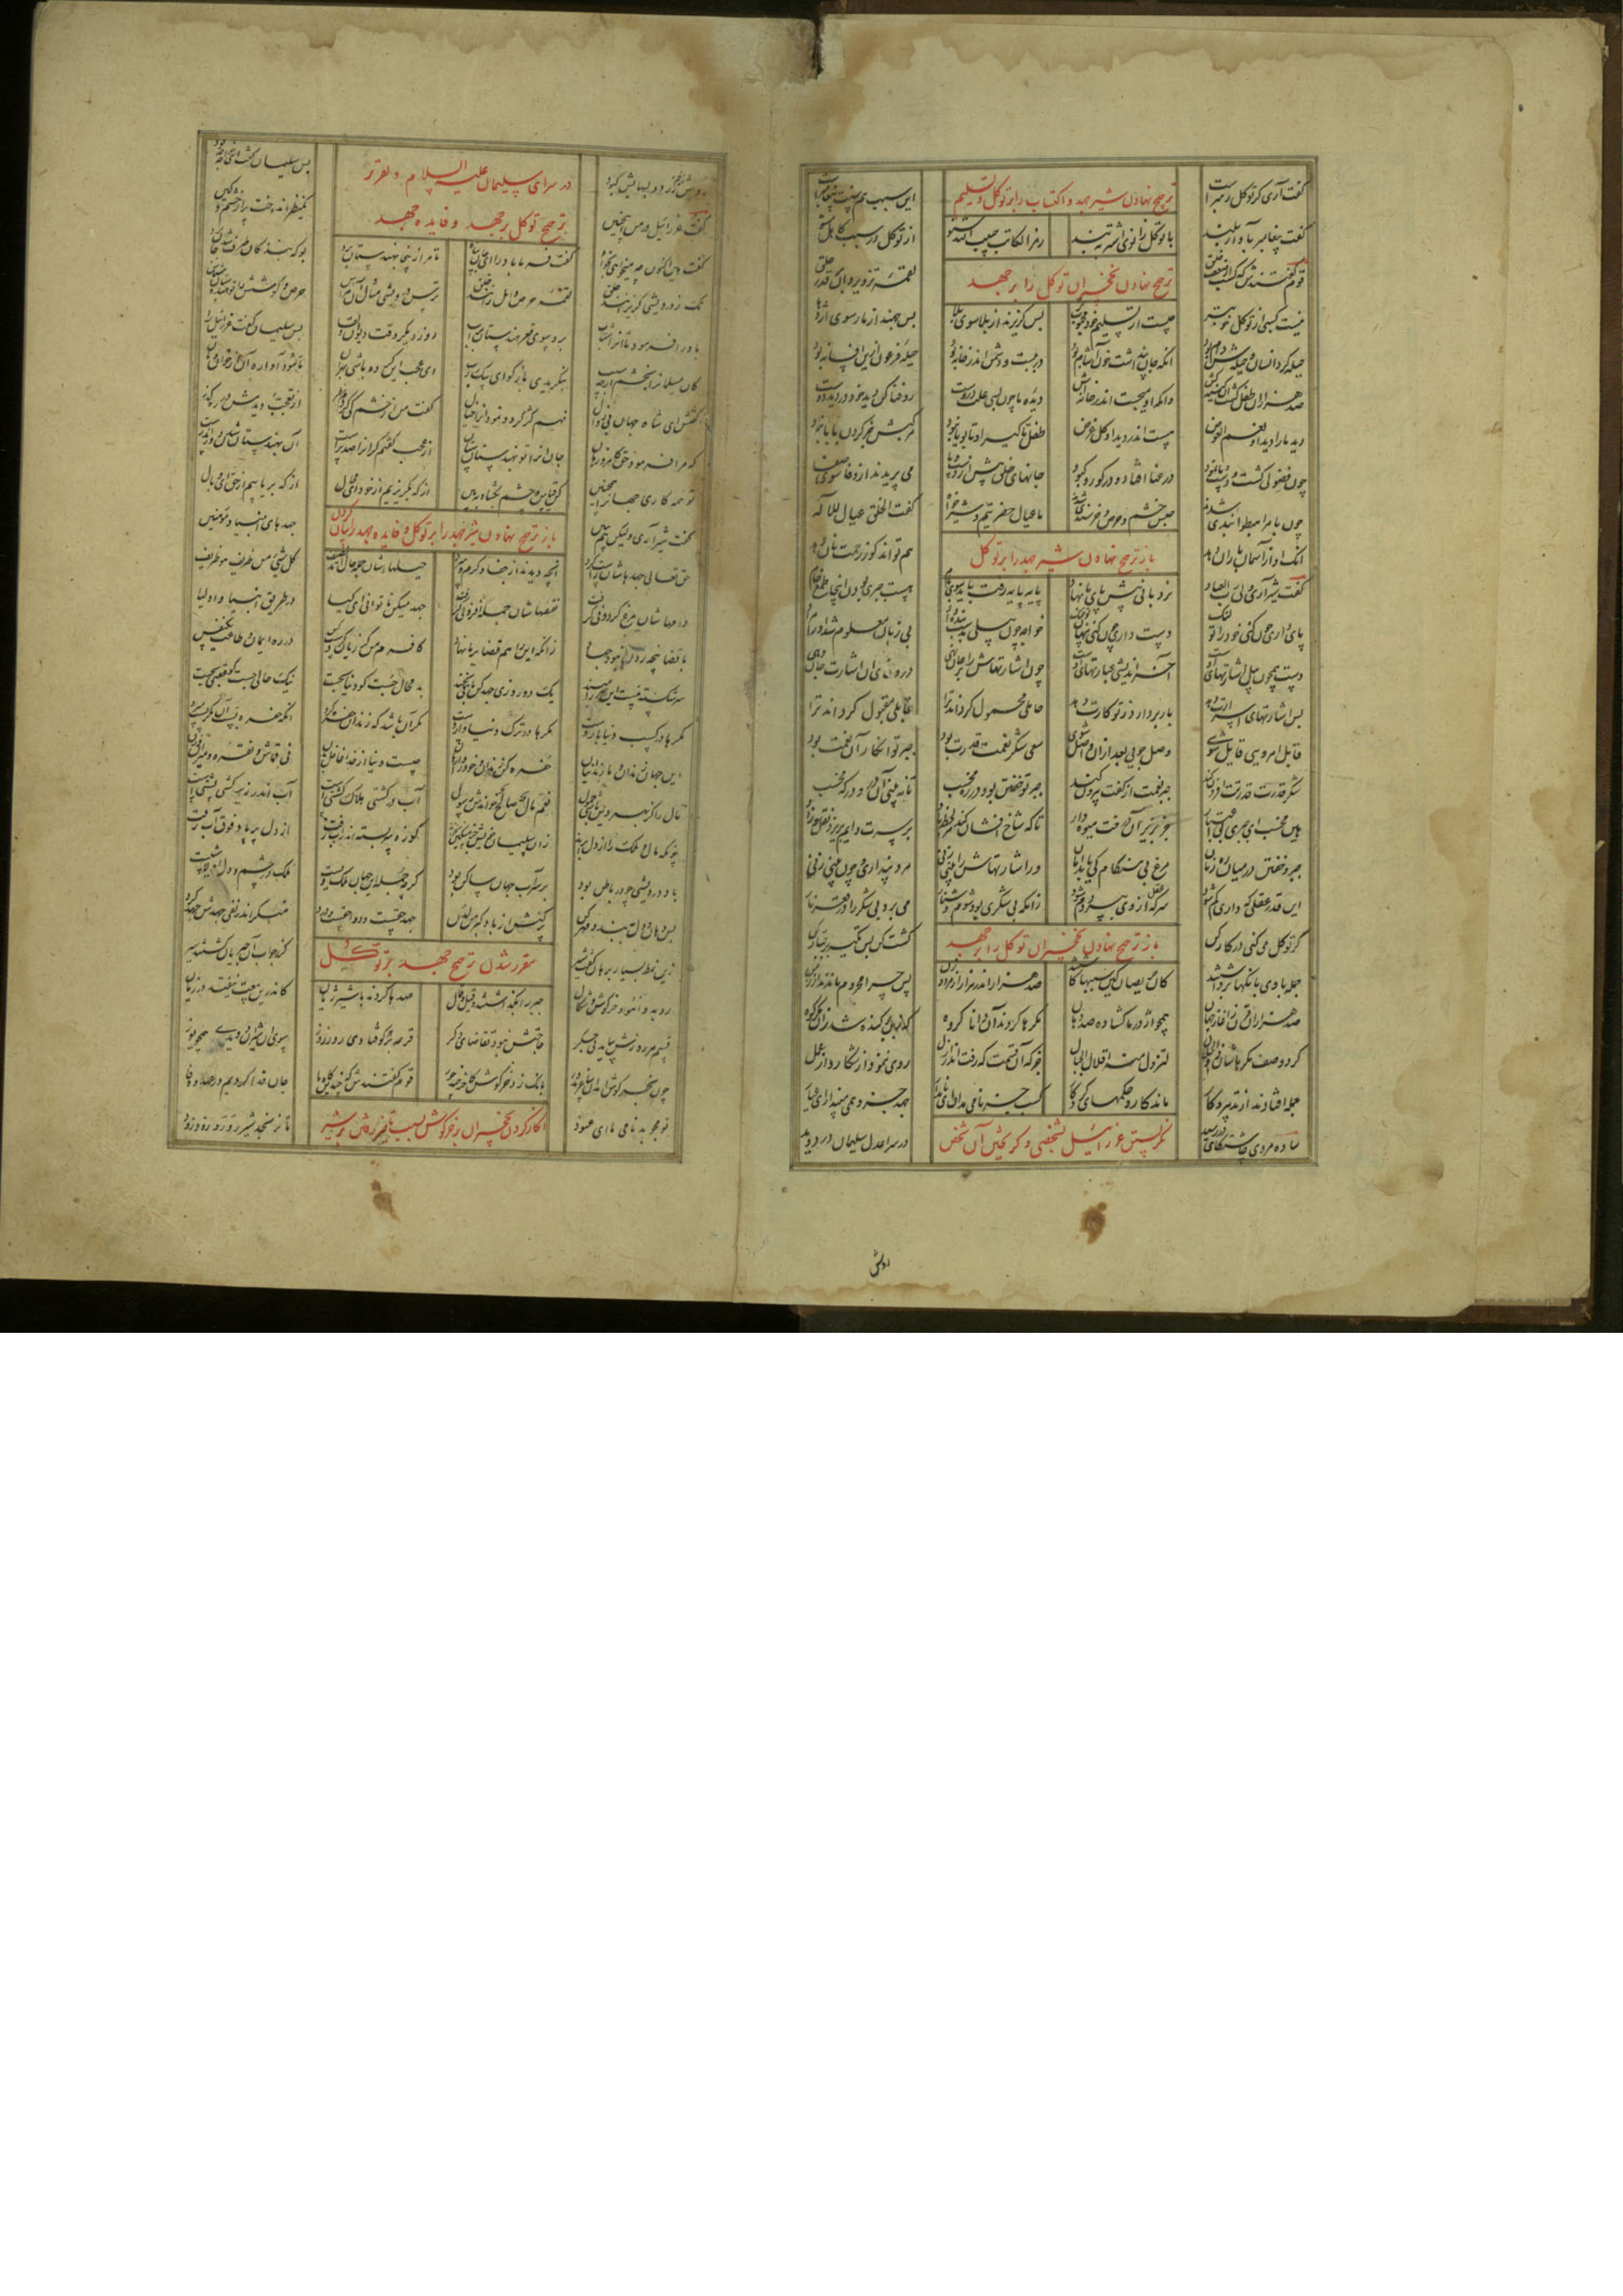 گفت آری گر توکل رهبر است ترجیح نهادن شیر جهد و اکتساب را بر توکل و تسلیم این سبب هم سنت پیغامبر است
گفت پیغامبر بآواز بلند با توکل زانوی اشتر ببند رمز الکاسب حبیب الله شنو از توکل در سبب کاهل مشو
قوم گفتندش که کسب از ضعف خلق ترجیح نهادن نخچیران توکل را بر جهد لقمه تزویر دان بر قدر حلق
نیست کسبی از توکل خوبتر چیست از تسلیم خود محبوبتر بس گریزند از بلا سوی بلا بس جهند از مار سوی اژدها
حیله کرد انسان و حیلش دام بود انکه جان پنداشت خون آشام بود در ببست و دشمن اندر خانه بود حیله فرعون ازین افسانه بود
صد هزاران طفل کشت آن کینه کش وانکه او میجست اندر خانه اش دیده ما چون بسی علت دروست رو فنا کن دید خود در دید دوست
دید ما را دید او نعم العوض هست اندر دید او کل غرض طفل تا گیرا و تا پویا نبود مرکبش جز گردن بابا نبود
چون فضولی گشت و دست و پا نمود در عنا افتاد و در کور و کبود جانهای خلق پیش از دست و پا می پریدند از وفا سوی صفا
چون بامر اهبطوا بندی شدند حبس خشم و حرص و خرسندی شدند ما عیال حضرتیم و شیرخواه گفت الخلق عیال للاله
انک او از آسمان باران دهد باز ترجیح نهادن شیر جهد را بر توکل هم تواند کو ز رحمت نان دهد
گفت شیر آری ولی رب العباد نردبانی پیش پای ما نهاد پایه پایه رفت باید سوی بام هست جبری بودن اینجا طمع خام
پای داری چون کنی خود را تو لنگ دست داری چون کنی پنهان تو چنگ خواجه چون بیلی بدست بنده داد بی زبان معلوم شد او را مراد
دست همچون بیل اشارتهای اوست آخر اندیشی عبارتهای اوست چون اشارتهاش را بر جان نهی در وفای آن اشارت جان دهی
بس اشارتهای اسرارت دهد بار بردارد ز تو کارت دهد حاملی محمول گرداند ترا قابلی مقبول گرداند ترا
قابل امر ویی قابل شوی وصل جویی بعد ازان واصل شوی سعی شکر نعمت قدرت بود جبر تو انکار آن نعمت بود
شکر قدرت قدرتت افزون کند جبر نعمت از کفت بیرون کند جبر تو خفتن بود در ره مخسب تا نه بینی آن در و درگه مخسب
هان مخسب ای جبری بی اعتبار جز بزیر آن درخت میوه دار تا که شاخ افشان کند هر لحظه باد بر سرت دایم بریزد نقل و زاد
جبر و خفتن در میان رهزنان مرغ بی هنگام کی یابد امان ور اشارتهاش را بینی زنی مرد پنداری و چون بینی زنی
این قدر عقلی که داری گم شود سر که عقل از وی بپرد دم شود زانکه بی شکری بود شوم و شنار می برد بی شکر را در قعر نار
گر توکل می کنی در کار کن باز ترجیح نهادن نخچیران توکل را بر جهد کشت کن پس تکیه بر جبار کن
جمله با وی بانگها برداشتند کان حریصان کین سببها کاشتند صد هزار اندر هزار از مرد و زن پس چرا محروم ماندند از زمن
صد هزاران قرن ز آغاز جهان همچو اژدرها گشاده صد دهان مکرها کردند آن دانا گروه که ز بن برکنده شد زان مکر کوه
کرد وصف مکرهاشان ذوالجلال لتزول منه اقلال الجبال جز که آن قسمت که رفت اندر ازل روی ننمود از شکار و از عمل
جمله افتادند از تدبیر و کار ماند کار و حکمهای کردگار کسب جز نامی مدان ای نامدار جهد جز وهمی مپندار ای عیار
ساده مردی چاشتگاهی در رسید نگریستن عزرائیل بشخصی و گریختن آن شخص در سرا عدل سلیمان در دوید
رویش
رویش از غم زرد و دو لب هایش کبود در سرای سلیمان علیه السلام و تقریر پس سلیمان گفت ای خواجه چه بود
گفت عزرائیل در من اینچنین ترجیح توکل بر جهد و فایده جهد یکنظر انداخت پر از خشم و کین
گفت هین اکنون چه میخواهی بخواه گفت فرما باد را ای جان پناه تا مرا زینجا بهندستان برد بو که بنده کان طرف شد جان برد
نک ز درویشی گریزانند خلق لقمه حرص و امل زانند خلق ترس درویشی مثال آن هراس حرص و کوشش را تو هندستان شناس
باد را فرمود تا او را شتاب برد سوی قعر هندستان بر آب روز دیگر وقت دیوان و لقا پس سلیمان گفت عزرائیل را
کان مسلمان را بخشم از چه سبب بنگریدی بازگو ای پیک رب ای عجب این کرده باشی بهر آن تا شود آواره او از خان و مان
گفتش ای شاه جهان بی زوال فهم کژ کرد و نمود او را خیال گفت من از خشم کی کردم نظر از تعجب دیدمش در رهگذر
که مرا فرمود حق کامروز هان جان او را تو بهندستان ستان از عجب گفتم گر او را صد پر است او بهندستان شدن دور اندر است
تو همه کار جهان را همچنین کن قیاس و چشم بگشا و ببین از که بگریزیم از خود ای محال از که برباییم از حق ای وبال
گفت شیر آری ولیکن هم ببین باز ترجیح نهادن شیر جهد را بر توکل و فایده جهد را بیان کردن جهدهای انبیا و مومنین
حق تعالی جهدشان را راست کرد آنچه دیدند از جفا و گرم و سرد حیلهاشان جمله حال آمد لطیف کل شیئ من ظریف هو ظریف
دامهاشان مرغ گردونی گرفت نقصهاشان جمله افزونی گرفت جهد میکن تا توانی ای کیا در طریق انبیا و اولیا
با قضا پنجه زدن نبود جهاد زانکه این را هم قضا بر ما نهاد کافرم من گر زیان کردست کس در ره ایمان و طاعت یکنفس
سر شکسته نیست این سر را مبند یک دو روزی جهد کن باقی بخند بد محالی جست کو دنیا بجست نیک حالی جست کو عقبی بجست
مکرها در کسب دنیا باردست مکرها در ترک دنیا واردست مکر آن باشد که زندان حفره کرد آنکه حفره بست آن مکریست سرد
این جهان زندان و ما زندانیان حفره کن زندان و خود را وارهان چیست دنیا از خدا غافل بدن نی قماش و نقره و میزان و زن
مال را کز بهر دین باشی حمول نعم مال صالح خواندش رسول آب در کشتی هلاک کشتی است آب اندر زیر کشتی پشتی است
چونکه مال و ملک را از دل براند زان سلیمان خویش جز مسکین نخواند کوزه سربسته اندر آب زفت از دل پر باد فوق آب رفت
باد درویشی چو در باطن بود بر سر آب جهان ساکن بود گر چه جمله این جهان ملک ویست ملک در چشم و دل او لاشیست
پس دهان دل ببند و مهر کن پر کنش از باد کبر من لدن جهد حقست و دوا حقست و درد منکر اندر نفی جهدش جهد کرد
زین نمط بسیار برهان گفت شیر مقرر شدن ترجیح جهد بر توکل کز جواب آن جبریان گشتند سیر
روبه و آهو و خرگوش و شغال جبر را بگذاشتند و قیل و قال عهدها کردند با شیر ژیان کاندرین بیعت نیفتد در زیان
قسم هر روزش بیاید بی جگر حاجتش نبود تقاضای دگر قرعه بر هر که فتادی روز روز سوی آن شیر او دویدی همچو یوز
چون بخرگوش آمد این ساغر بدور بانگ زد خرگوش کاخر چند جور قوم گفتندش که چندین گاه ما جان فدا کردیم در عهد و وفا
تو مجو بدنامی ما ای عنود انکار کردن نخچیران بر خرگوش بسبب تاخیر رفتن بر شیر تا نرنجد شیر رو رو زود زود